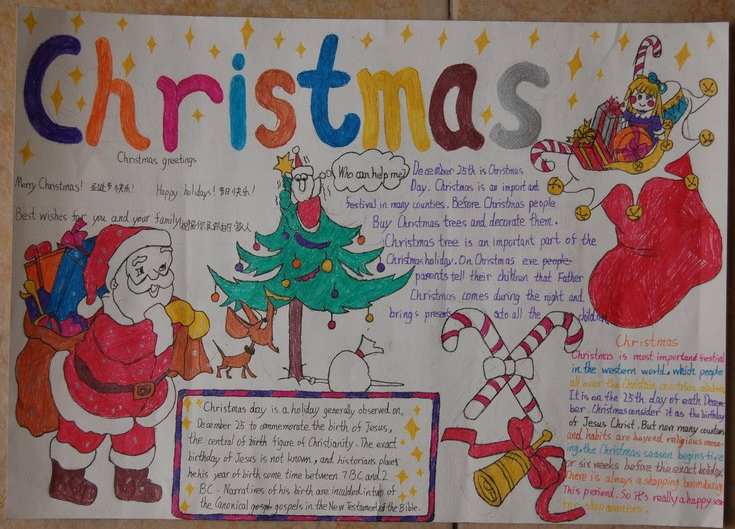 Christmas
Christmas greetings
Merry Christmas! 圣诞节快乐! Happy holidays! 节日快乐!
Best wishes for you and your family
Who can help me?
December 25th is Christmas
Day. Christmas is an important
festival in many counties. Before Christmas people
Buy Christmas trees and decorate them.
Christmas tree is an important part of the
Christmas holiday. On Christmas eve people
parents tell their children that Father
Christmas comes during the night and
brings presents to all the children
Christmas day is a holiday generally observed on
December 25 to ommemorate the birth of Jesus,
the central of birth figure of Christianity. The exact
birthday of Jesus is not known, and historians places
his year of birth some time between 7 BC and 2
BC. Narratives of his birth are in two of
the Canonical gospels in the New Testament of the Bible.
Christmas
Christmas is most important festival
in the western world. which people
all over the countries celebrate
It is on the 25th day of eath Decem-
ber. Christmas consider it as the birthday
of Jesus Christ. But now many countries
and habits are beyond religious mean-
ing. the Christmas season begins five
or six weeks before the exact holiday
There is always a stopping boom during
This periond. So it's really a happy